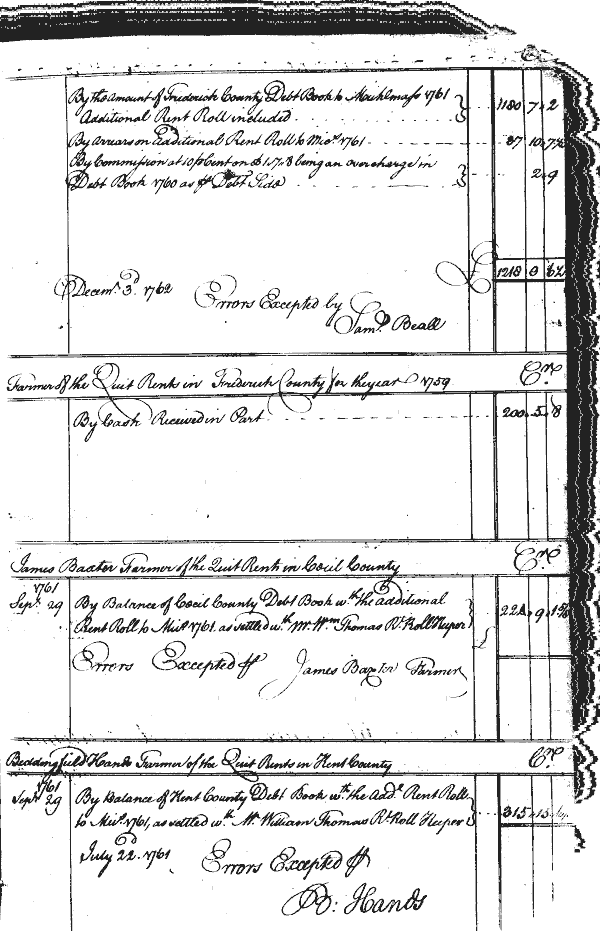 By the amount of Frederick County Debt Book to Michlmass 1761
Additional Rent Roll included 1180 7 2
By arrears on additional Rent Roll to Mics 1761 37 10
By Commission at 10 p Cent on being an overcharge in
Debt Book 1760 as p Debt Side 2 9
£ 1218 0
Decemr. 3d. 1762 Errors Excepted by
Saml. Beall
Farmer of the Quit Rents in Frederick County for the year 1759 Cr.
By Cash Received in Part 200 5 8
James Baxter Farmer of the Quit Rents in Cecil County Cr.
1761
Sepr. 29 By Balance of Cecil County Debt Book wth. the additional
Rent Roll to Mics 1761. as settled wth. Mr. Wm. Thomas Rt. Roll Keeper 224 9
Errors Excepted p James Baxter Farmer
Beddingfield Hands Farmer of the Quit Rents in Kent County Cr.
1761
Sepr. 29 By Balance of Kent County Debt Book wth. the Add.l Rent Roll
to Mics 1761, as settled wth. Mr. William Thomas Rt. Roll Keeper 315 15
July 22d. 1761 Errors Excepted p
B: Hands